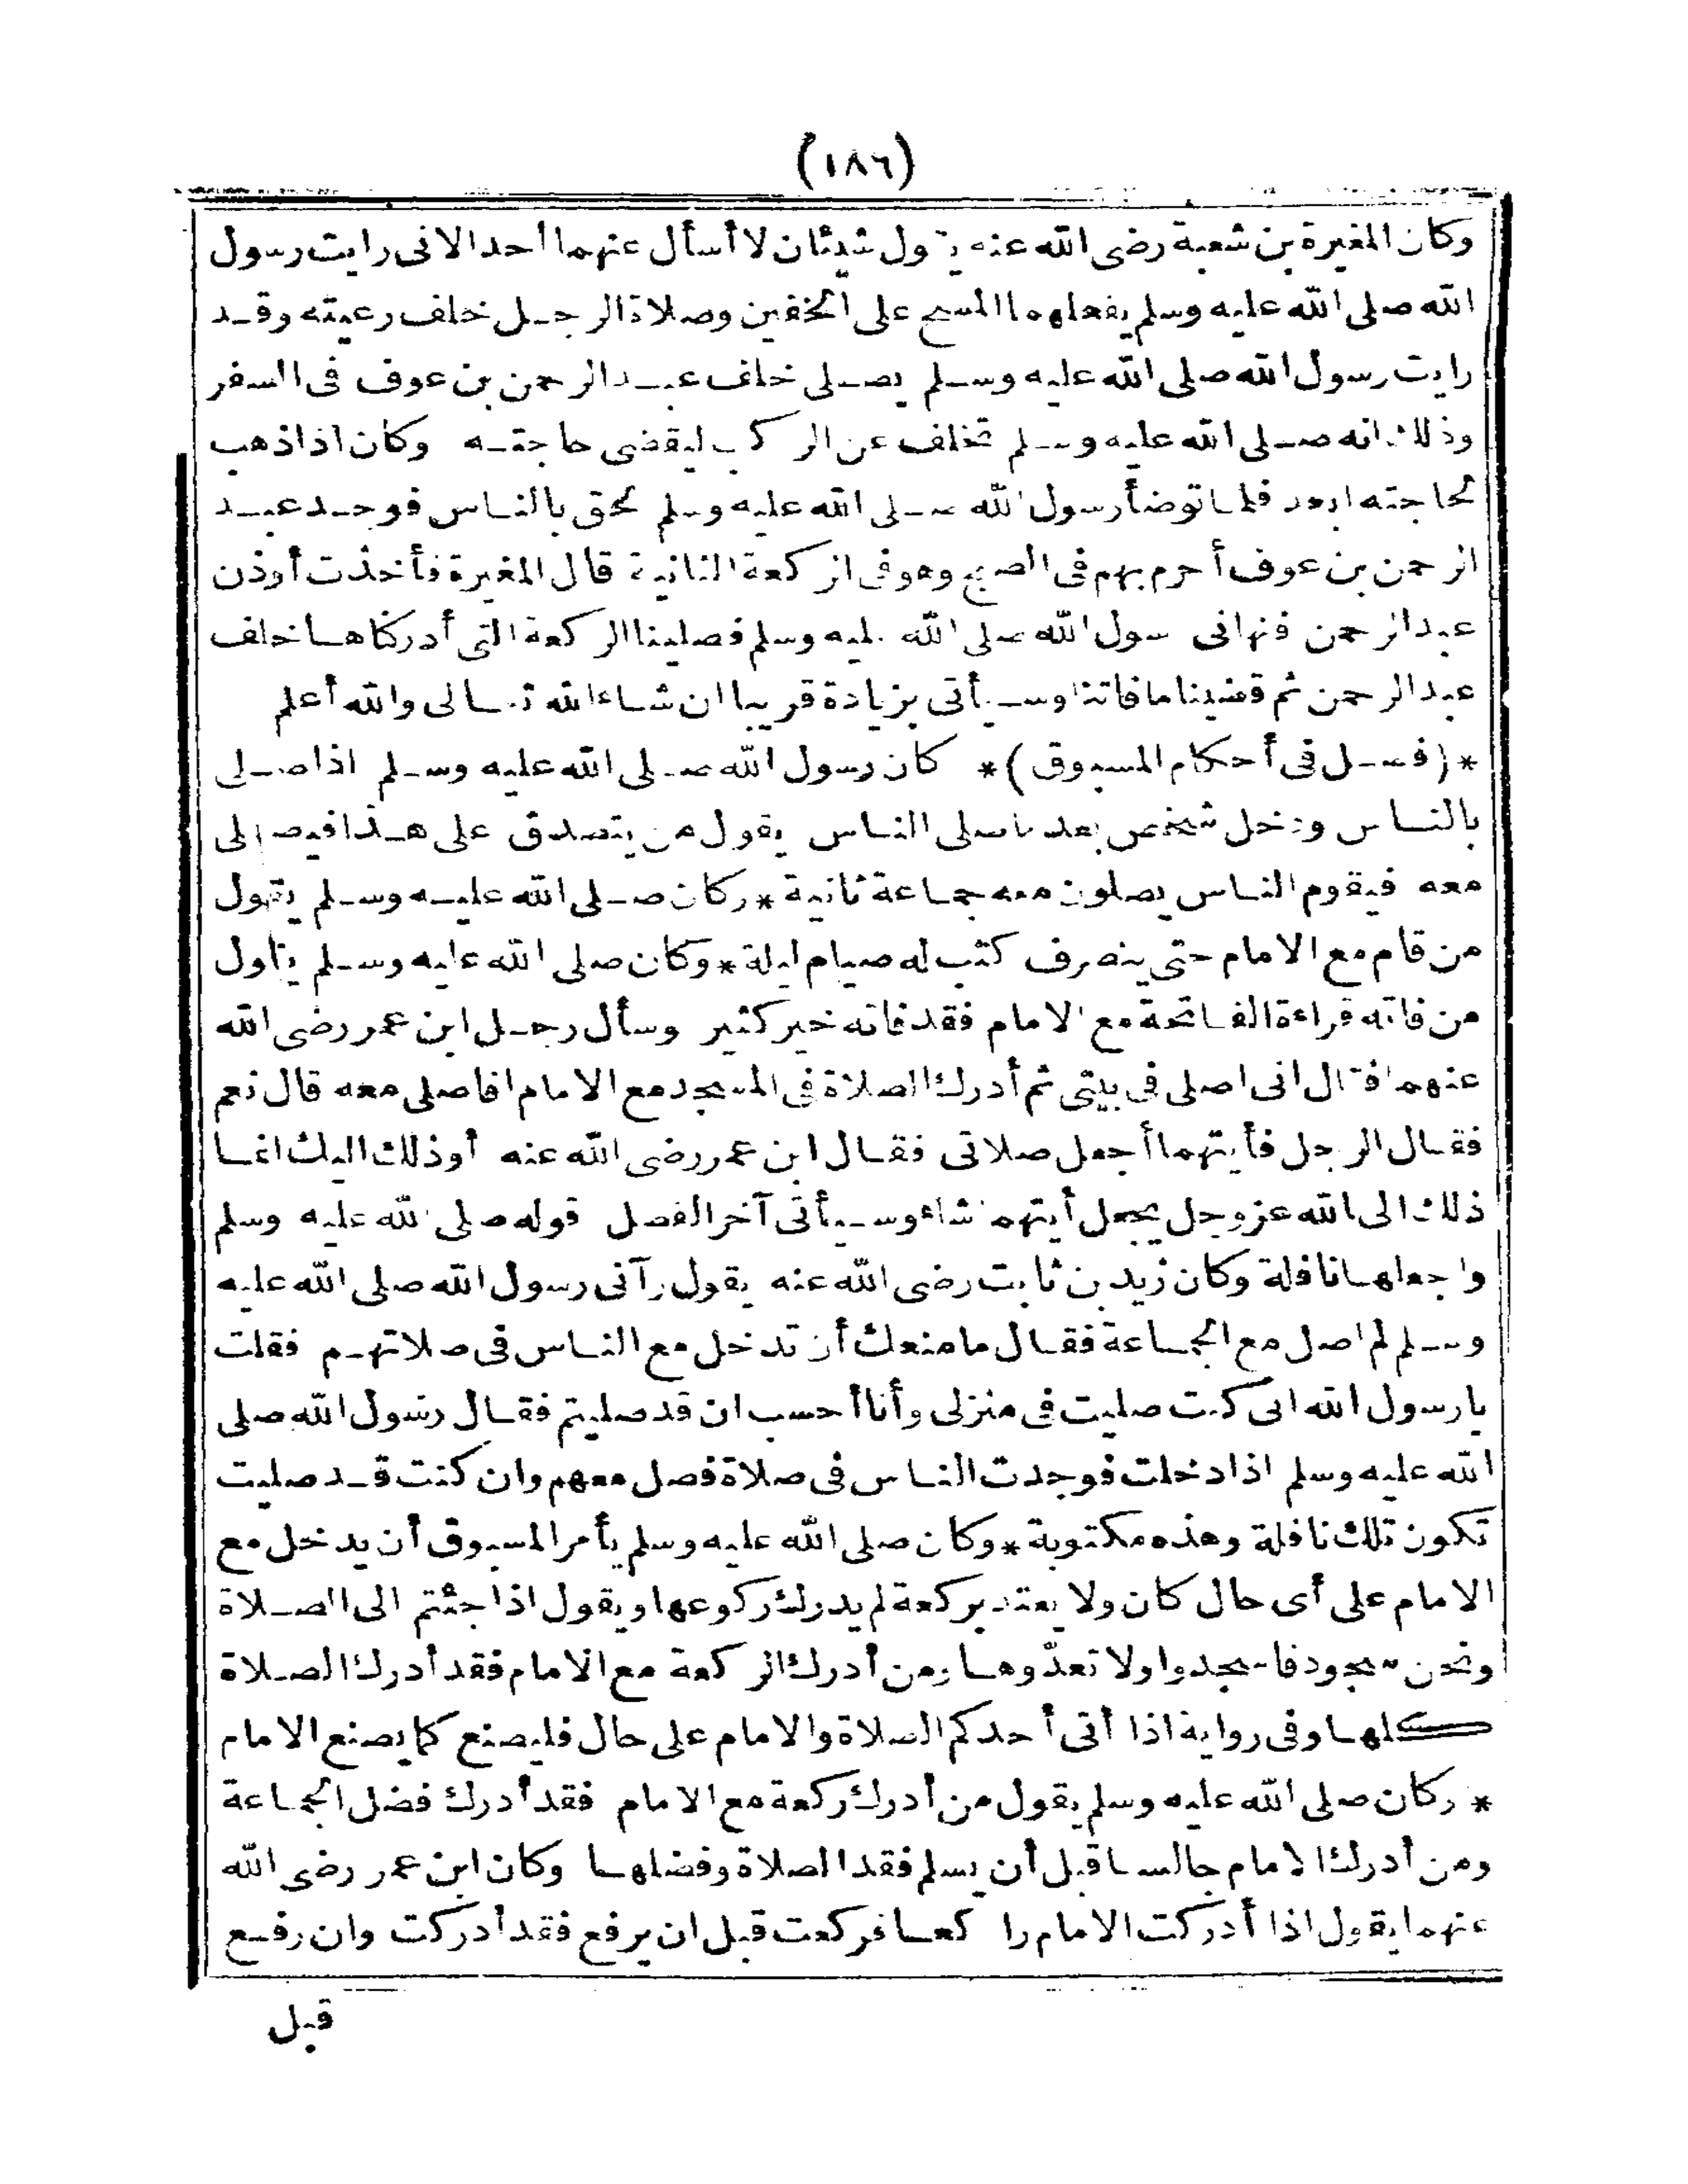 (١٨٦)
وكان المغيرة بن شعبة رضى الله عنه يقول شيئان لا أسأل عنهما أحد الانى رايت رسول
الله صلى الله عليه وسلم يفعلهما المسح على الخفين وصلاة الرجل خلف رعيته وقد
رايت رسول الله صلى الله عليه وسلم يصلى خلف عبد الرحمن بن عوف فى السفر
وذلك انه صلى الله عليه وسلم تخلف عن الركب ليقضى حاجته وكان اذا ذهب
لحاجته ابعد فلما توضأ رسول الله صلى الله عليه وسلم لحق بالناس فوجد عبد
الرحمن بن عوف أحرم بهم فى الصبح وهو فى الركعة الثانية قال المغيرة فأخذت أوذن
عبد الرحمن فنهانى رسول الله صلى الله عليه وسلم فصلينا الركعة التى أدركناها خلف
عبد الرحمن ثم قضينا ما فاتنا وسيأتى بزيادة قريبا ان شاء الله تعالى والله أعلم
*(فصل فى أحكام المسبوق)* كان رسول الله صلى الله عليه وسلم اذا صلى
بالناس ودخل شخص بعد ما صلى الناس يقول من يتصدق على هذا فيصلى
معه فيقوم الناس يصلون معه جماعة ثانية * وكان صلى الله عليه وسلم يقول
من قام مع الامام حتى ينصرف كتب له صيام ليلة * وكان صلى الله عليه وسلم يقول
من فاته قراءة الفاتحة مع الامام فقد فاته خير كثير وسأل رجل ابن عمر رضى الله
عنهما فقال انى اصلى فى بيتى ثم أدرك الصلاة فى المسجد مع الامام افاصلى معه قال نعم
فقال الرجل فأيتهما أجعل صلاتى فقال ابن عمر رضى الله عنه أوذلك اليك انما
ذلك الى الله عز وجل يجعل أيتهما شاء وسيأتى آخر الفصل قوله صلى الله عليه وسلم
واجعلها نافلة وكان زيد بن ثابت رضى الله عنه يقول رآنى رسول الله صلى الله عليه
وسلم لم اصل مع الجماعة فقال ما منعك أن تدخل مع الناس فى صلاتهم فقلت
يا رسول الله انى كنت صليت فى منزلى وأنا أحسب ان قد صليتم فقال رسول الله صلى
الله عليه وسلم اذا دخلت فوجدت الناس فى صلاة فصل معهم وان كنت قد صليت
تكون تلك نافلة وهذه مكتوبة * وكان صلى الله عليه وسلم يأمر المسبوق أن يدخل مع
الامام على أى حال كان ولا يعتد بركعة لم يدرك ركوعها ويقول اذا جئتم الى الصلاة
ونحن سجود فاسجدوا ولا تعدّوها ومن أدرك الركعة مع الامام فقد أدرك الصلاة
كلها وفى رواية اذا أتى أحدكم الصلاة والامام على حال فليصنع كما يصنع الامام
* وكان صلى الله عليه وسلم يقول من أدرك ركعة مع الامام فقد أدرك فضل الجماعة
ومن أدرك الامام جالسا قبل أن يسلم فقد الصلاة وفضلها وكان ابن عمر رضى الله
عنهما يقول اذا أدركت الامام راكعا فركعت قبل ان يرفع فقد أدركت وان رفع
قبل